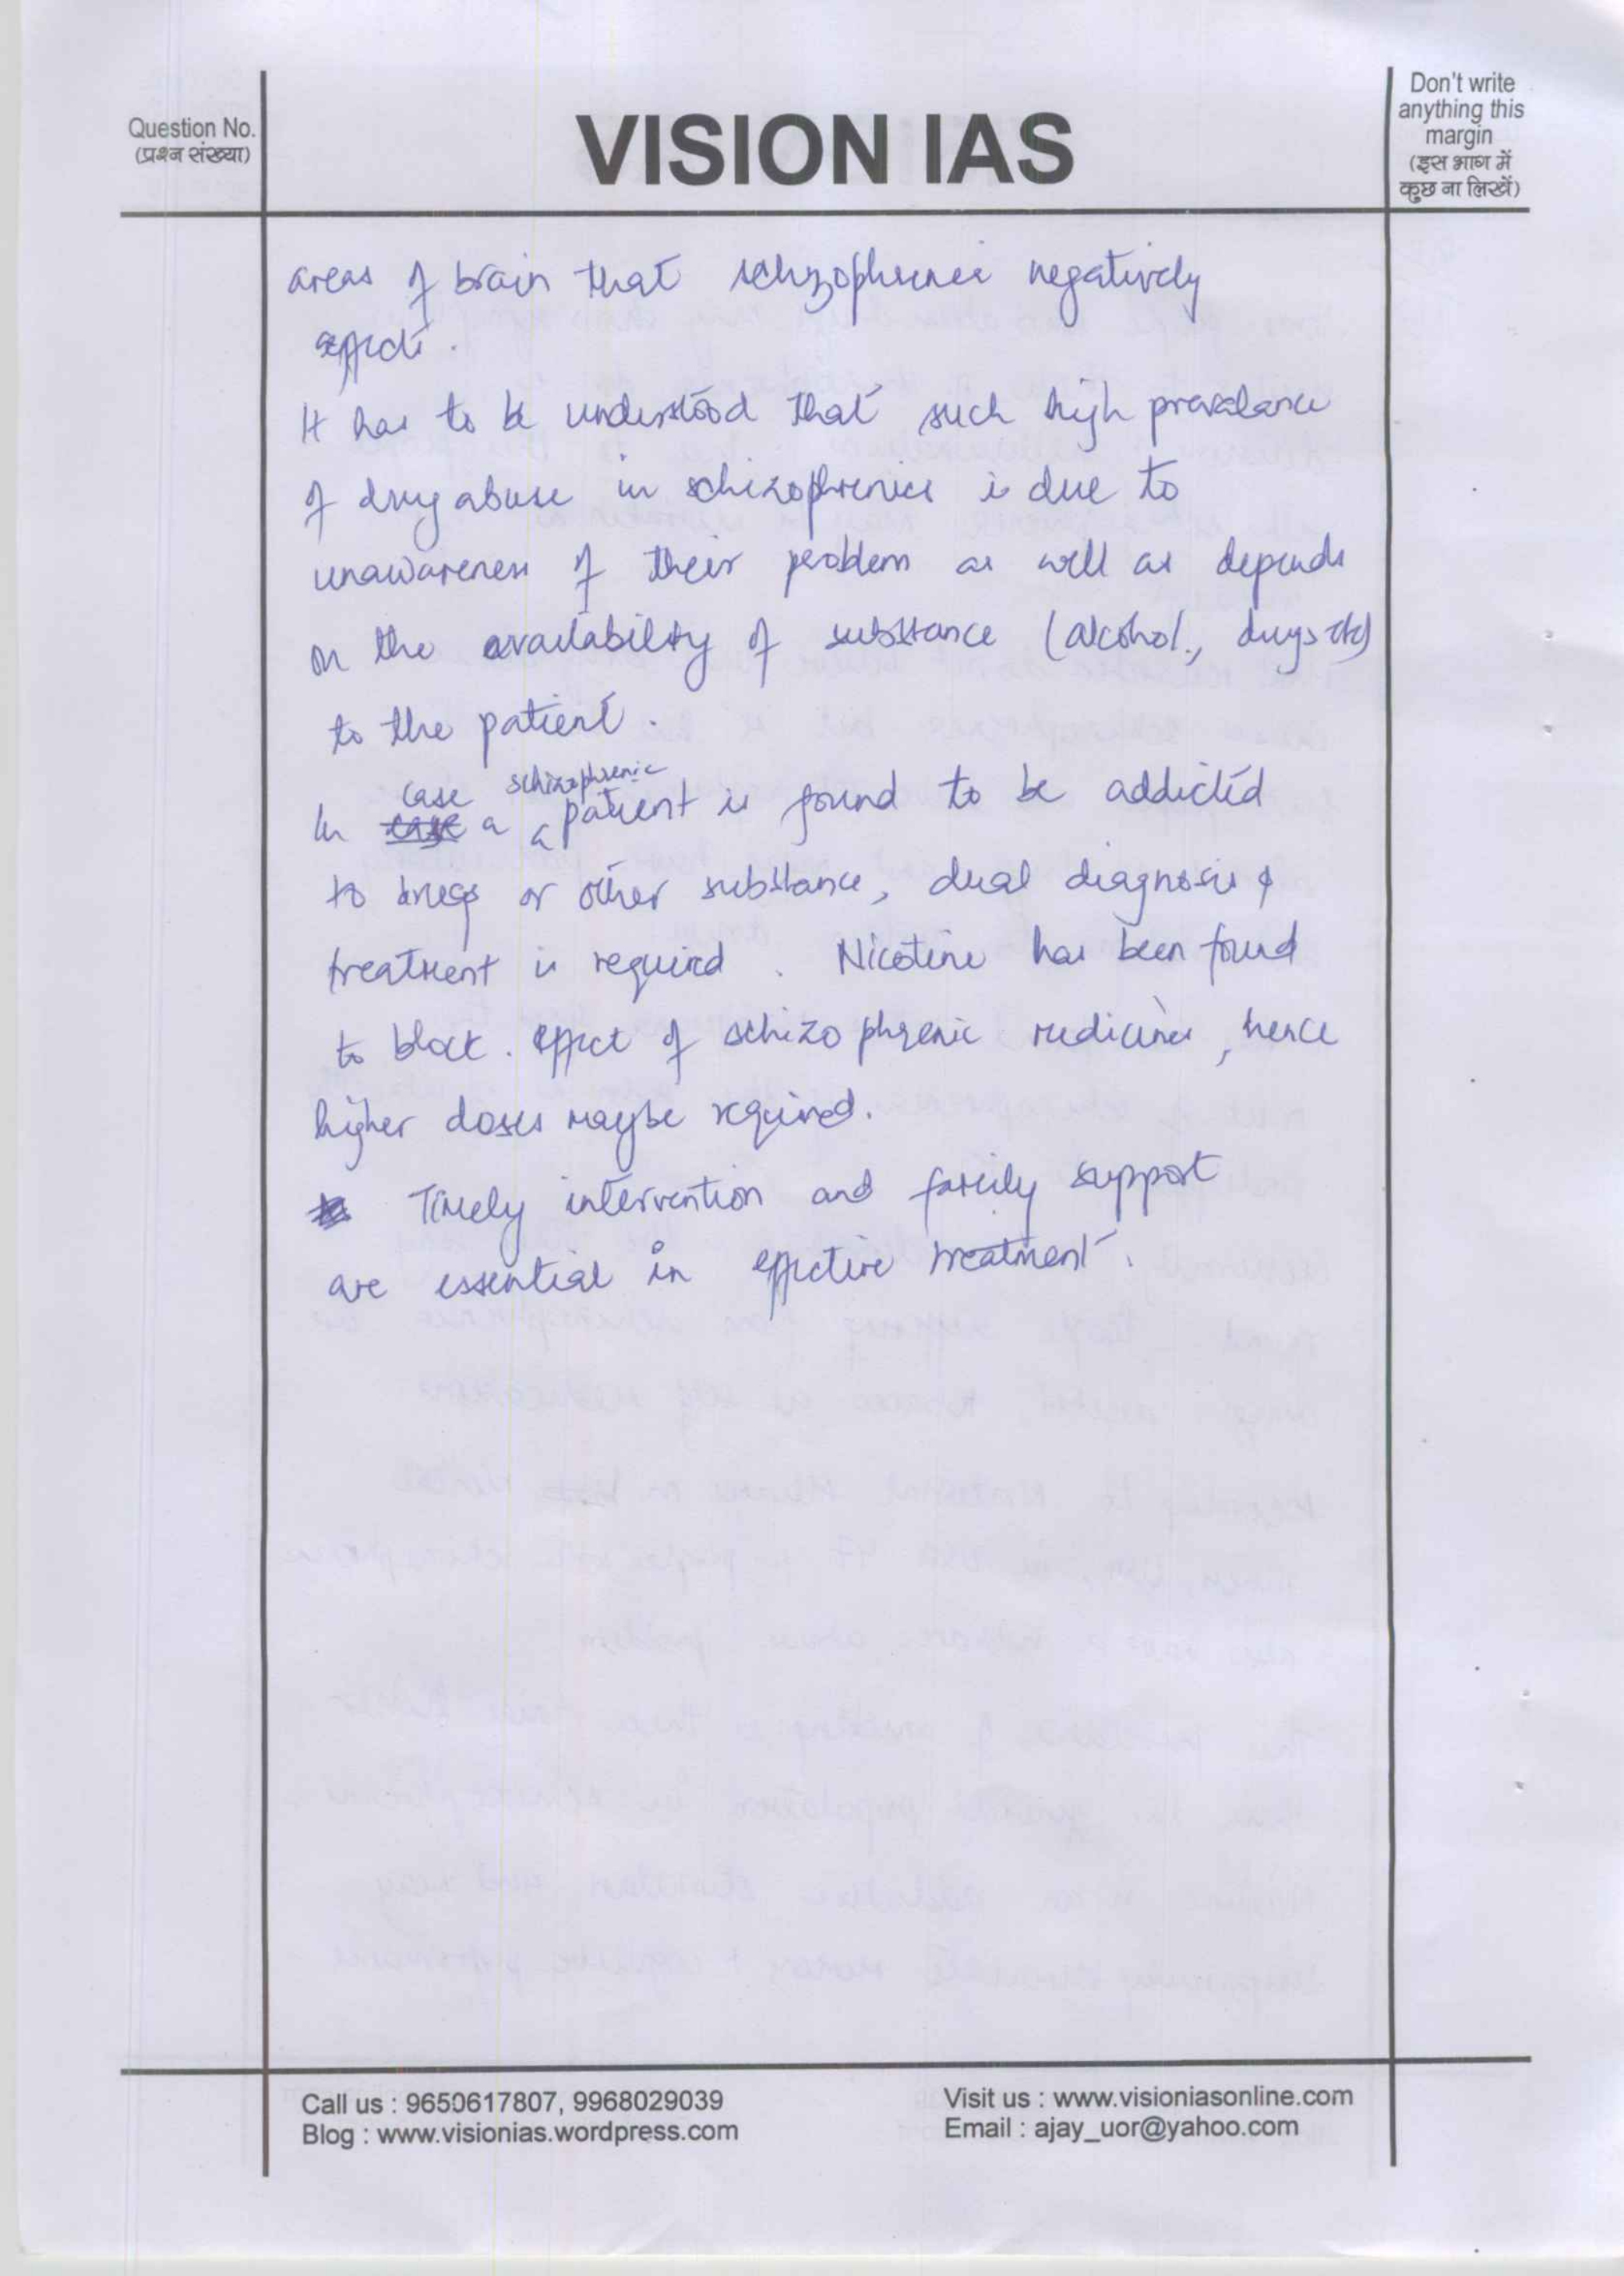 Question No.
(प्रश्न संख्या)
VISION IAS
Don't write
anything this
margin
(इस भाग में
कुछ ना लिखें)
areas of brain that schizophrenia negatively
affects.
It has to be understood that such high prevalance
of drug abuse in schizophrenics is due to
unawareness of their problem as well as depends
on the availability of substance (alcohol, drugs etc)
to the patient.
In case a schizophrenic patient is found to be addicted
to drugs or other substance, dual diagnosis &
treatment is required. Nicotine has been found
to block effect of schizophrenic medicines, hence
higher doses maybe required.
Timely intervention and family support
are essential in effective treatment.
Call us : 9650617807, 9968029039
Blog : www.visionias.wordpress.com
Visit us : www.visioniasonline.com
Email : ajay_uor@yahoo.com